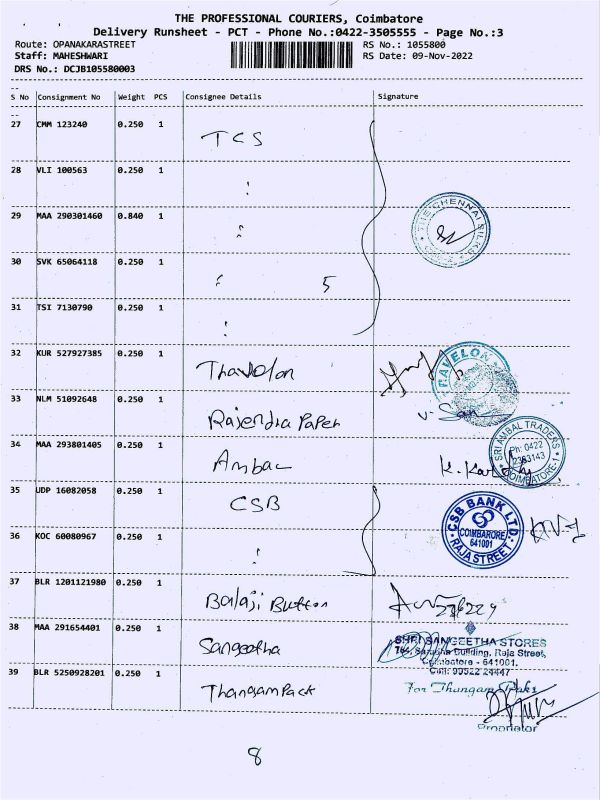 THE PROFESSIONAL COURIERS, Coimbatore
Delivery Runsheet - PCT - Phone No.:0422-3505555 - Page No.:3
Route: OPANAKARASTREET RS No.: 1055800
Staff: MAHESHWARI RS Date: 09-Nov-2022
DRS No.: DCJB105580003
S No Consignment No Weight PCS Consignee Details Signature
27 CMM 123240 0.250 1 TCS
28 VLI 100563 0.250 1
29 MAA 290301460 0.840 1
THE CHENNAI SILKS
30 SVK 65064118 0.250 1 5
31 TSI 7130790 0.250 1
32 KUR 527927385 0.250 1
RAVELON
33 NLM 51092648 0.250 1 Rajendra Paper
34 MAA 293801405 0.250 1
SRI AMBAL TRADERS
Ph: 0422
2383143
COIMBATORE-1
35 UDP 16082058 0.250 1 CSB
CSB BANK LTD
COIMBATORE
641001
RAJA STREET
36 KOC 60080967 0.250 1
37 BLR 1201121980 0.250 1 Balaji Button
38 MAA 291654401 0.250 1 Sangeetha
SHRI SANGEETHA STORES
Building, Raja Street,
Coimbatore - 641001.
Cell: 99522 24447
39 BLR 5250928201 0.250 1 ThangamPack
For Thangam Paks
Proprietor
8